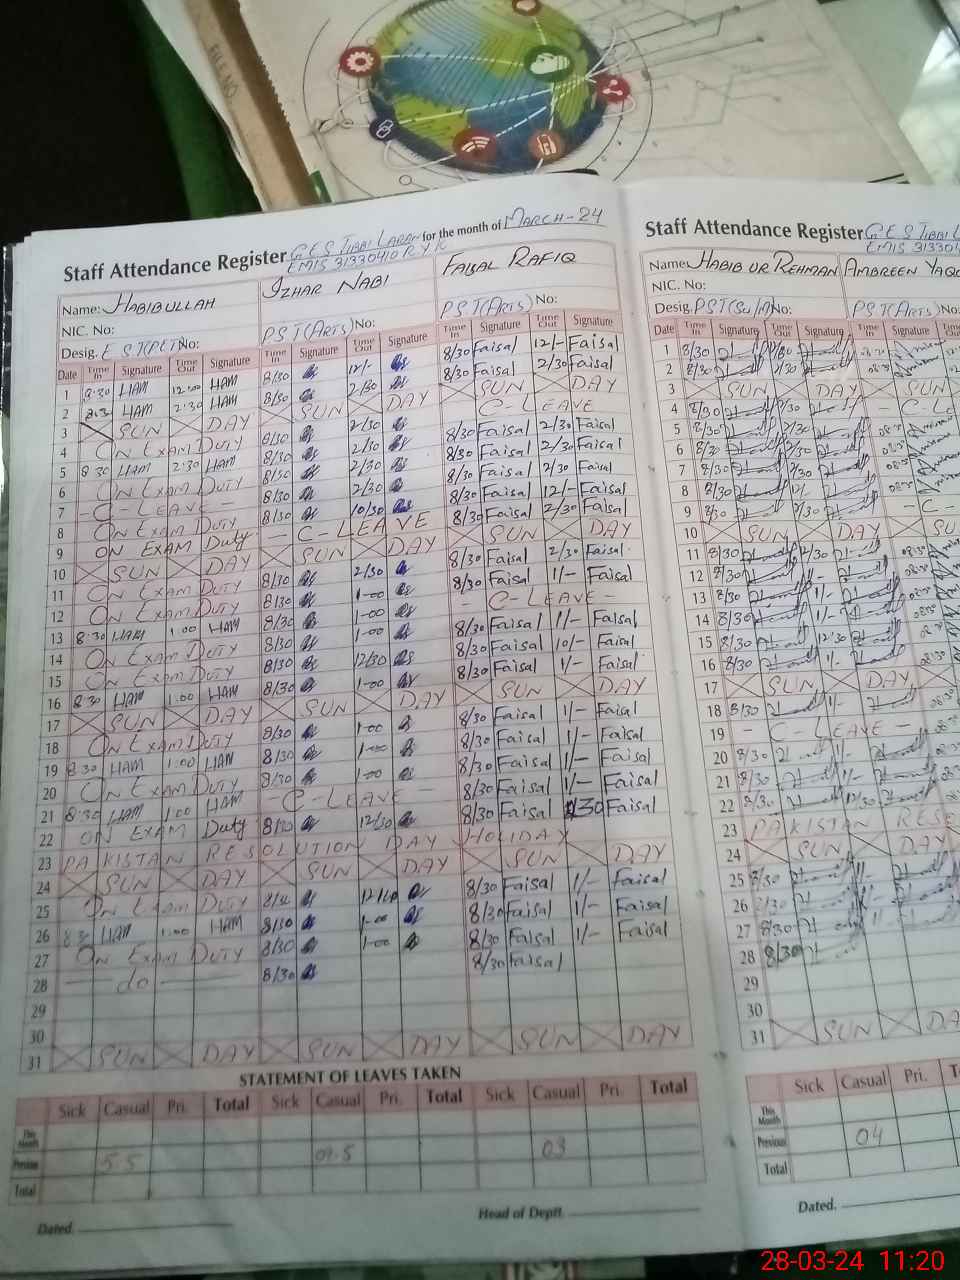 FILE NO
Staff Attendance Register G.E.S TIBBI LARAN for the month of MARCH-24
EMIS 31330410 R Y K
Name: HABIBULLAH IZHAR NABI FAISAL RAFIQ
NIC. No: No: No:
Desig. E S T(PET) P S T(ARTS) P S T(ARTS)
Date Time In Signature Time Out Signature Time In Signature Time Out Signature Time In Signature Time Out Signature
1 8:30 HAM 12:00 HAM 8/30 12/- 8/30 Faisal 12/- Faisal
2 8:30 HAM 2:30 HAM 8/30 2/30 8/30 Faisal 2/30 Faisal
3 SUN DAY SUN DAY SUN DAY
4 ON EXAM DUTY 8/30 2/30 C-LEAVE
5 8:30 HAM 2:30 HAM 8/30 2/30 8/30 Faisal 2/30 Faisal
6 ON EXAM DUTY 8/30 2/30 8/30 Faisal 2/30 Faisal
7 -C-LEAVE- 8/30 2/30 8/30 Faisal 2/30 Faisal
8 ON EXAM DUTY 8/30 10/30 8/30 Faisal 12/- Faisal
9 ON EXAM Duty -C-LEAVE 8/30 Faisal 2/30 Faisal
10 SUN DAY SUN DAY SUN DAY
11 ON EXAM DUTY 8/30 2/30 8/30 Faisal 2/30 Faisal
12 ON EXAM DUTY 8/30 1-00 8/30 Faisal 1/- Faisal
13 8:30 HAM 1:00 HAM 8/30 1-00 - C-LEAVE -
14 ON EXAM DUTY 8/30 1-00 8/30 Faisal 1/- Faisal
15 ON EXAM DUTY 8/30 12/30 8/30 Faisal 10/- Faisal
16 8:30 HAM 1:00 HAM 8/30 1-00 8/30 Faisal 1/- Faisal
17 SUN DAY SUN DAY SUN DAY
18 ON EXAM DUTY 8/30 1-00 8/30 Faisal 1/- Faisal
19 8:30 HAM 1:00 HAM 8/30 1-00 8/30 Faisal 1/- Faisal
20 ON EXAM DUTY 8/30 1-00 8/30 Faisal 1/- Faisal
21 8:30 HAM 1:00 HAM -C-LEAVE- 8/30 Faisal 1/- Faisal
22 ON EXAM Duty 8/30 12/30 8/30 Faisal 30 Faisal
23 PAKISTAN RESOLUTION DAY HOLIDAY
24 SUN DAY SUN DAY SUN DAY
25 ON EXAM DUTY 8/30 8/30 Faisal 1/- Faisal
26 8:30 HAM 1:00 HAM 8/30 1-00 8/30 Faisal 1/- Faisal
27 ON EXAM DUTY 8/30 1-00 8/30 Faisal 1/- Faisal
28 — do — 8/30 8/30 Faisal
29
30
31 SUN DAY SUN DAY SUN DAY
STATEMENT OF LEAVES TAKEN
Sick Casual Pri. Total Sick Casual Pri. Total Sick Casual Pri. Total
This Month
Previous 5.5 09.5 03
Total
Dated. Head of Deptt.
Staff Attendance Register G.E.S TIBBI L
EMIS 313304
Name: HABIB UR REHMAN AMBREEN YAQ
NIC. No:
Desig. PST(Sc/M) No: PST(ARTS) No:
Date Time In Signature Time Out Signature Time In Signature
1 8/30
2 8/30
3 SUN DAY SUN
4 8/30 - C-L
5 8/30
6 8/30
7 8/30
8 8/30
9 8/30 - C -
10 SUN DAY SU
11 8/30 2/30
12 8/30
13 8/30 1/-
14 8/30 1/-
15 8/30 12/30
16 8/30 1/-
17 SUN DAY
18 8/30 1/-
19 - C-LEAVE -
20 8/30 1/-
21 8/30 1/-
22 8/30
23 PAKISTAN RESO
24 SUN DAY
25 8/30 1/-
26 8/30
27 8/30 1/-
28 8/30
29
30
31 SUN DA
Sick Casual Pri. T
This Month
Previous 04
Total
Dated.
28-03-24 11:20